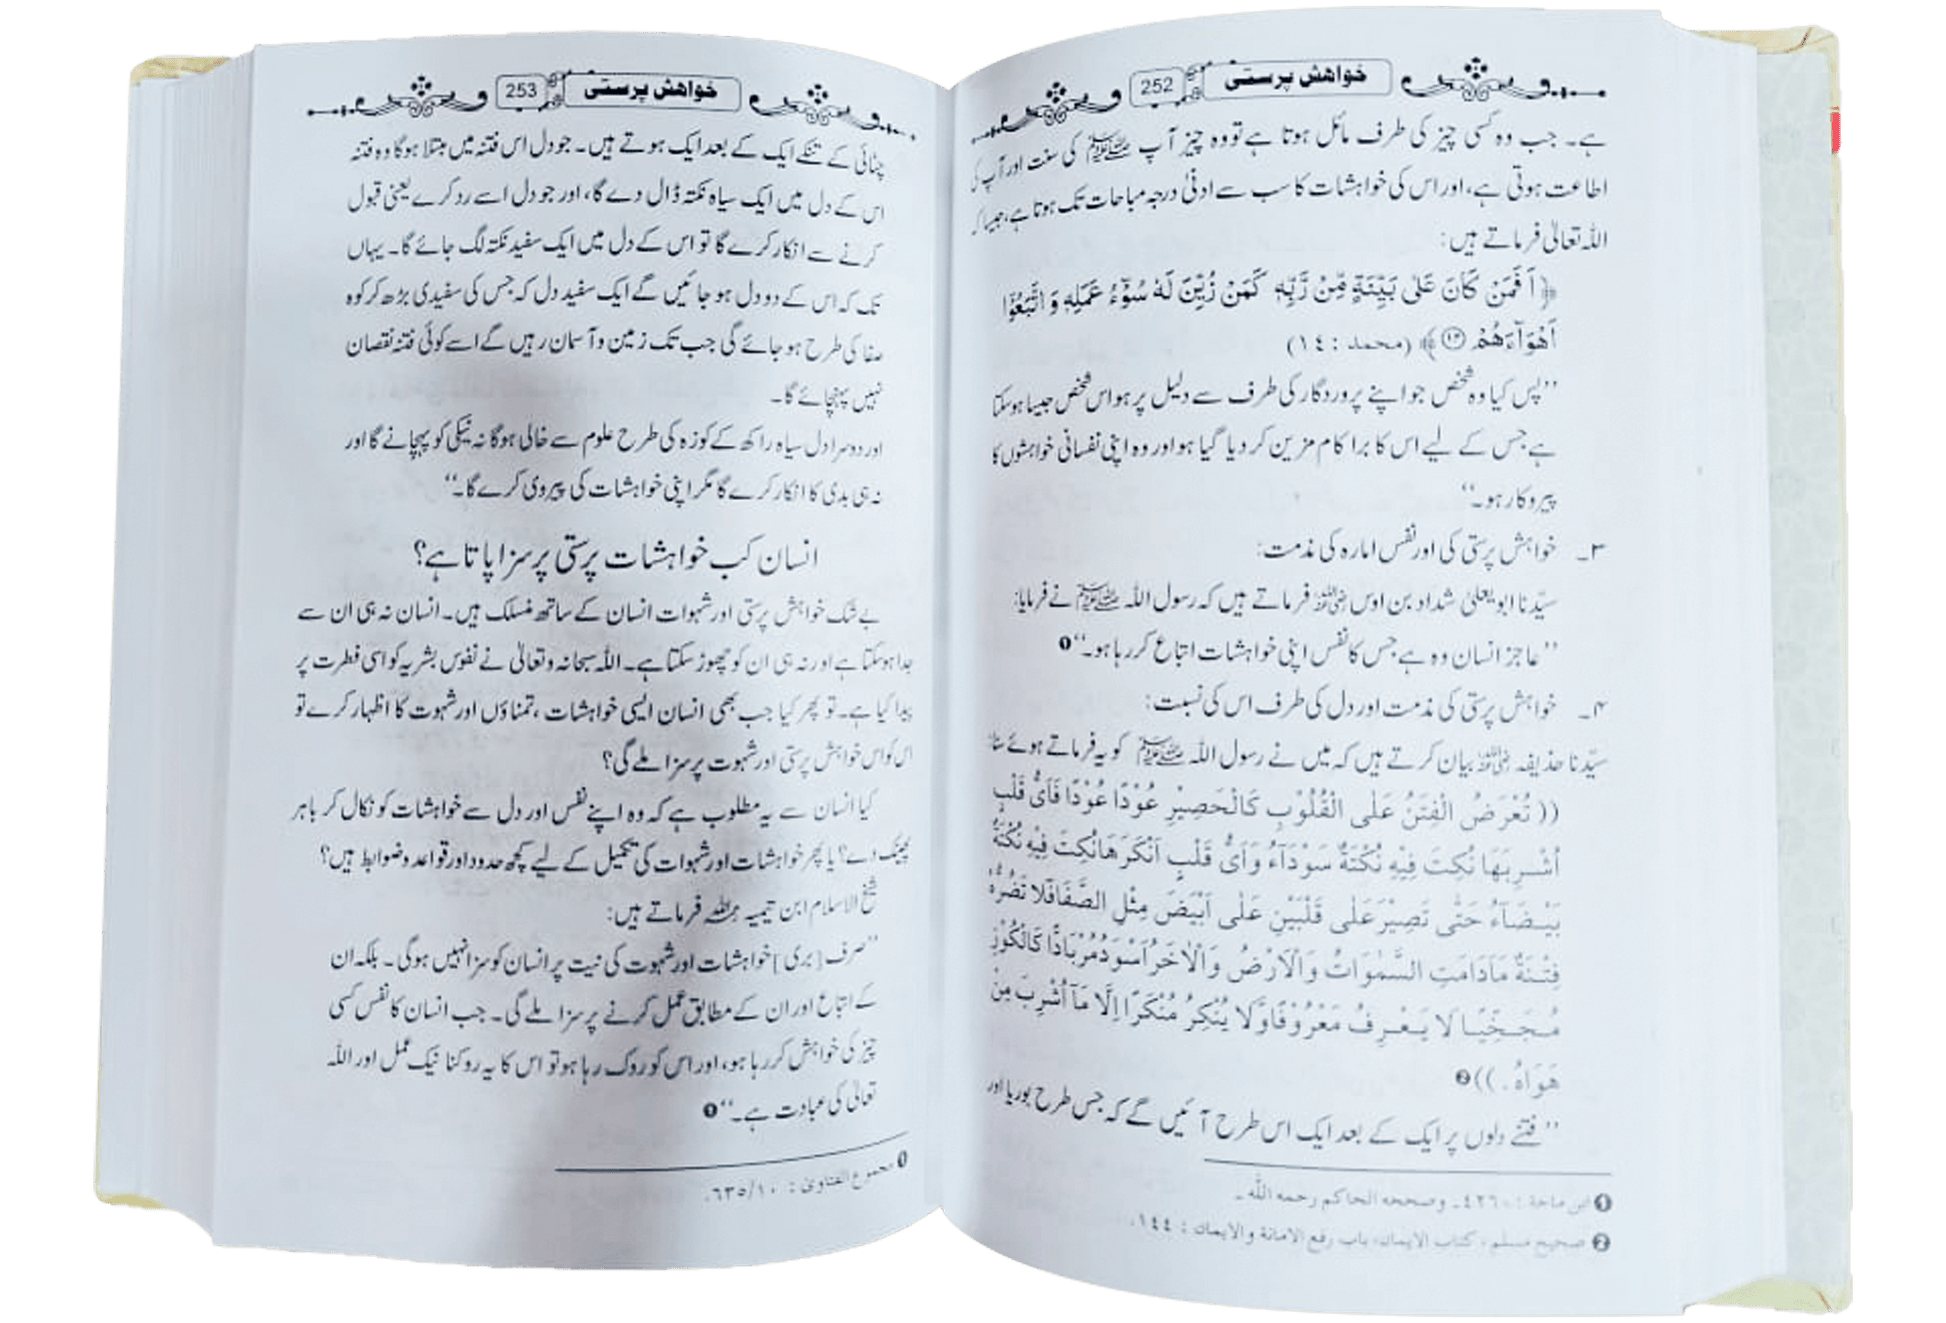 خواهش پرستی 252
ہے۔ جب وہ کسی چیز کی طرف مائل ہوتا ہے تو وہ چیز آپ ﷺ کی سنت اور آپ کی
اطاعت ہوتی ہے، اور اس کی خواہشات کا سب سے ادنیٰ درجہ مباحات تک ہوتا ہے، جیسا کہ
اللہ تعالیٰ فرماتے ہیں:
﴿اَفَمَنْ كَانَ عَلٰى بَيِّنَةٍ مِّنْ رَّبِّهٖ كَمَنْ زُيِّنَ لَهٗ سُوْٓءُ عَمَلِهٖ وَ اتَّبَعُوْۤا
اَهْوَآءَهُمْ ۝۱۴﴾ (محمد : ١٤)
’’پس کیا وہ شخص جو اپنے پروردگار کی طرف سے دلیل پر ہو اس شخص جیسا ہوسکتا
ہے جس کے لیے اس کا برا کام مزین کر دیا گیا ہو اور وہ اپنی نفسانی خواہشوں کا
پیروکار ہو۔‘‘
۳۔ خواہش پرستی کی اور نفس امارہ کی مذمت:
سیّدنا ابو یعلیٰ شداد بن اوس رضی اللہ عنہ فرماتے ہیں کہ رسول اللہ ﷺ نے فرمایا:
’’عاجز انسان وہ ہے جس کا نفس اپنی خواہشات اتباع کر رہا ہو۔‘‘❶
۴۔ خواہش پرستی کی مذمت اور دل کی طرف اس کی نسبت:
سیّدنا حذیفہ رضی اللہ عنہ بیان کرتے ہیں کہ میں نے رسول اللہ ﷺ کو یہ فرماتے ہوئے سنا:
(( تُعْرَضُ الْفِتَنُ عَلٰى الْقُلُوْبِ كَالْحَصِيْرِ عُوْدًا عُوْدًا فَاَىُّ قَلْبٍ
اُشْرِبَهَا نُكِتَ فِيْهِ نُكْتَةٌ سَوْدَآءُ وَاَىُّ قَلْبٍ اَنْكَرَهَا نُكِتَ فِيْهِ نُكْتَةٌ
بَيْضَآءُ حَتّٰى تَصِيْرَ عَلٰى قَلْبَيْنِ عَلٰى اَبْيَضَ مِثْلِ الصَّفَا فَلَا تَضُرُّهُ
فِتْنَةٌ مَادَامَتِ السَّمٰوَاتُ وَالْاَرْضُ وَالْاٰخَرُ اَسْوَدُ مُرْبَادًّا كَالْكُوْزِ
مُجَخِّيًا لَا يَعْرِفُ مَعْرُوْفًا وَّلَا يُنْكِرُ مُنْكَرًا اِلَّا مَآ اُشْرِبَ مِنْ
هَوَاهُ . ))❷
’’فتنے دلوں پر ایک کے بعد ایک اس طرح آئیں گے کہ جس طرح بوریا اور
❶ ابن ماجة : ٤٢٦٠۔ وصححه الحاكم رحمه الله ۔
❷ صحيح مسلم، كتاب الايمان، باب رفع الامانة والايمان : ١٤٤.
خواهش پرستی 253
چٹائی کے تنکے ایک کے بعد ایک ہوتے ہیں۔ جو دل اس فتنہ میں مبتلا ہوگا وہ فتنہ
اس کے دل میں ایک سیاہ نکتہ ڈال دے گا، اور جو دل اسے رد کرے یعنی قبول
کرنے سے انکار کرے گا تو اس کے دل میں ایک سفید نکتہ لگ جائے گا۔ یہاں
تک کہ اس کے دو دل ہو جائیں گے ایک سفید دل کہ جس کی سفیدی بڑھ کر کوہ
صفا کی طرح ہو جائے گی جب تک زمین و آسمان رہیں گے اسے کوئی فتنہ نقصان
نہیں پہنچائے گا۔
اور دوسرا دل سیاہ راکھ کے کوزہ کی طرح علوم سے خالی ہوگا نہ نیکی کو پہچانے گا اور
نہ ہی بدی کا انکار کرے گا مگر اپنی خواہشات کی پیروی کرے گا۔‘‘
انسان کب خواہشات پرستی پر سزا پاتا ہے؟
بے شک خواہش پرستی اور شہوات انسان کے ساتھ منسلک ہیں۔ انسان نہ ہی ان سے
جدا ہوسکتا ہے اور نہ ہی ان کو چھوڑ سکتا ہے۔ اللہ سبحانہ وتعالیٰ نے نفوس بشریہ کو اسی فطرت پر
پیدا کیا ہے۔ تو پھر کیا جب بھی انسان ایسی خواہشات، تمناؤں اور شہوت کا اظہار کرے تو
اس کو اس خواہش پرستی اور شہوت پر سزا ملے گی؟
کیا انسان سے یہ مطلوب ہے کہ وہ اپنے نفس اور دل سے خواہشات کو نکال کر باہر
پھینک دے؟ یا پھر خواہشات اور شہوات کی تکمیل کے لیے کچھ حدود اور قواعد و ضوابط ہیں؟
شیخ الاسلام ابن تیمیہ رحمہ اللہ فرماتے ہیں:
’’صرف [بری] خواہشات اور شہوت کی نیت پر انسان کو سزا نہیں ہوگی۔ بلکہ ان
کے اتباع اور ان کے مطابق عمل کرنے پر سزا ملے گی۔ جب انسان کا نفس کسی
چیز کی خواہش کر رہا ہو، اور اس کو روک رہا ہو تو اس کا یہ روکنا نیک عمل اور اللہ
تعالیٰ کی عبادت ہے۔‘‘❶
❶ مجموع الفتاوىٰ : ٦٣٥/١٠.